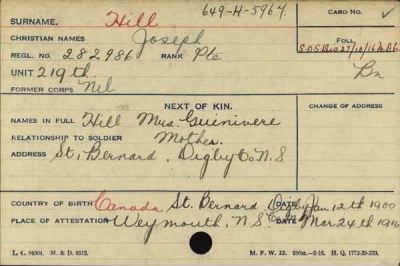 649-H-5967
SURNAME. Hill CARD NO.
CHRISTIAN NAMES Joseph FOLL
REGL. NO. 282986 RANK Pte S.O.S. Div 27/10/16
UNIT 219th. Bn
FORMER CORPS Nil
NEXT OF KIN. CHANGE OF ADDRESS
NAMES IN FULL Hill Mrs. Guenivere
RELATIONSHIP TO SOLDIER Mother.
ADDRESS St. Bernard, Digby Co N.S
COUNTRY OF BIRTH Canada St. Bernard Digby DATE Jan 12th 1900
PLACE OF ATTESTATION Weymouth, N.S DATE Mar 24th 1916
M. & D. M. F. W. 22 H. Q. 1772-39-339.